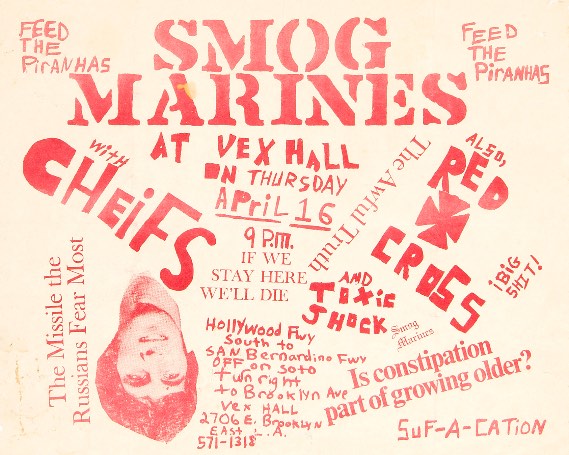 FEED
THE
PiRANHAS
SMOG
MARINES
FEED
THE
PiRANHAS
AT VEX HALL
ON THURSDAY
APRiL 16
9 P.M.
WITH
CHEiFS
IF WE
STAY HERE
WE'LL DIE
The Awful Truth
ALSO,
RED
CROSS
¡BiG
SHiT!
AND
TOXiC
SHOCK
Smog
Marines
The Missile the
Russians Fear Most
HOllYWOOD FWY
South to
SAN BERnardino FWY
OFF on SOTO
TURN right
to Brooklyn Ave
VEX HALL
2706 E. BROOKLYN
EAST L.A.
571-1318
Is constipation
part of growing older?
SUF-A-CATiON